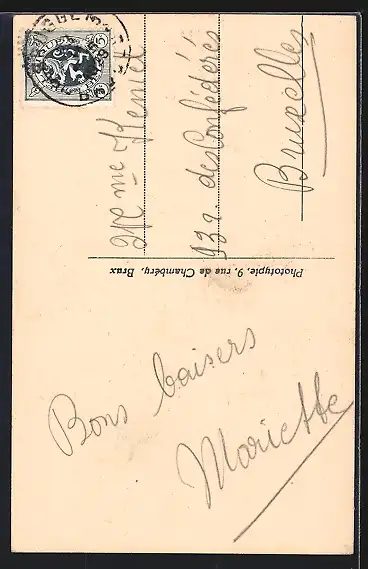 Bons baisers
Mariette
Mme
93a. des Confédérés
Bruxelles
Phototypie, 9, rue de Chambéry, Brux